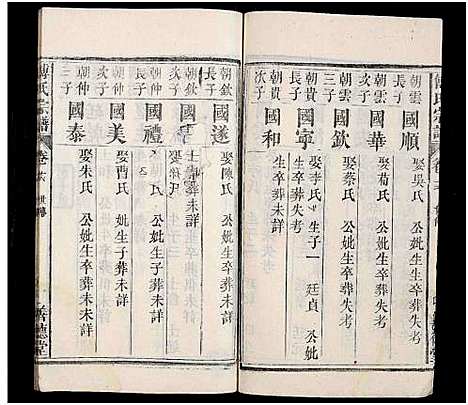 傅氏宗譜
朝雲長子
國順
娶吳氏 公妣生卒葬失考
朝雲次子
國華
娶荀氏 公妣生卒葬失考
朝雲三子
國欽
娶蔡氏 公妣生卒葬失考
朝貴長子
國寧
娶李氏 生子一 廷貞 公妣生卒葬失考
朝貴次子
國和
生卒葬未詳
朝欽長子
國遂
娶陳氏 公妣生卒葬未詳
朝欽次子
國
生卒葬未詳
朝仲長子
國禮
公妣生子葬未未詳
朝仲次子
國美
娶曹氏 公妣生子葬未未詳
朝仲三子
國泰
娶朱氏 公妣生卒葬未未詳
傅氏宗譜
卷六
善德堂